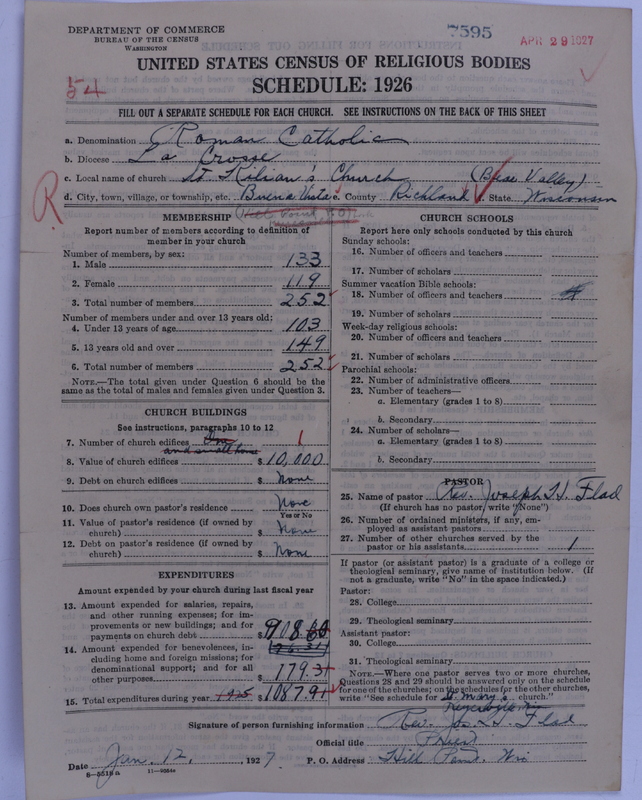 DEPARTMENT OF COMMERCE
BUREAU OF THE CENSUS
WASHINGTON
7595
APR 29 1927
UNITED STATES CENSUS OF RELIGIOUS BODIES
SCHEDULE: 1926
54
FILL OUT A SEPARATE SCHEDULE FOR EACH CHURCH. SEE INSTRUCTIONS ON THE BACK OF THIS SHEET
a. Denomination Roman Catholic
b. Diocese La Crosse
c. Local name of church St Kilian's Church (Bear Valley)
d. City, town, village, or township, etc. Buena Vista e. County Richland f. State Wisconsin
R
MEMBERSHIP
Report number of members according to definition of member in your church
Number of members, by sex:
1. Male 133
2. Female 119
3. Total number of members 252
Number of members under and over 13 years old:
4. Under 13 years of age 103
5. 13 years old and over 149
6. Total number of members 252
NOTE.—The total given under Question 6 should be the same as the total of males and females given under Question 3.
CHURCH BUILDINGS
See instructions, paragraphs 10 to 12
7. Number of church edifices One 1
8. Value of church edifices $10,000
9. Debt on church edifices $ None
10. Does church own pastor's residence None
Yes or No
11. Value of pastor's residence (if owned by
church) $ None
12. Debt on pastor's residence (if owned by
church) $ None
EXPENDITURES
Amount expended by your church during last fiscal year
13. Amount expended for salaries, repairs,
and other running expenses; for im-
provements or new buildings; and for
payments on church debt $908.
14. Amount expended for benevolences, in-
cluding home and foreign missions; for
denominational support; and for all
other purposes $179.31
15. Total expenditures during year 1925 $1087.91
CHURCH SCHOOLS
Report here only schools conducted by this church
Sunday schools:
16. Number of officers and teachers
17. Number of scholars
Summer vacation Bible schools:
18. Number of officers and teachers
19. Number of scholars
Week-day religious schools:
20. Number of officers and teachers
21. Number of scholars
Parochial schools:
22. Number of administrative officers
23. Number of teachers—
a. Elementary (grades 1 to 8)
b. Secondary
24. Number of scholars—
a. Elementary (grades 1 to 8)
b. Secondary
PASTOR
25. Name of pastor Rev. Joseph H. Flad
(If church has no pastor, write "None")
26. Number of ordained ministers, if any, em-
ployed as assistant pastors
27. Number of other churches served by the
pastor or his assistants 1
If pastor (or assistant pastor) is a graduate of a college or
theological seminary, give name of institution below. (If
not a graduate, write "No" in the space indicated.)
Pastor:
28. College
29. Theological seminary
Assistant pastor:
30. College
31. Theological seminary
NOTE.—Where one pastor serves two or more churches,
Questions 28 and 29 should be answered only on the schedule
for one of the churches; on the schedules for the other churches,
write "See schedule for St Mary's church."
Signature of person furnishing information Rev. Jos. H. Flad
Official title
Date Jan. 12, 1927 P. O. Address Hill Point. Wis
8-5519a 11-9554a